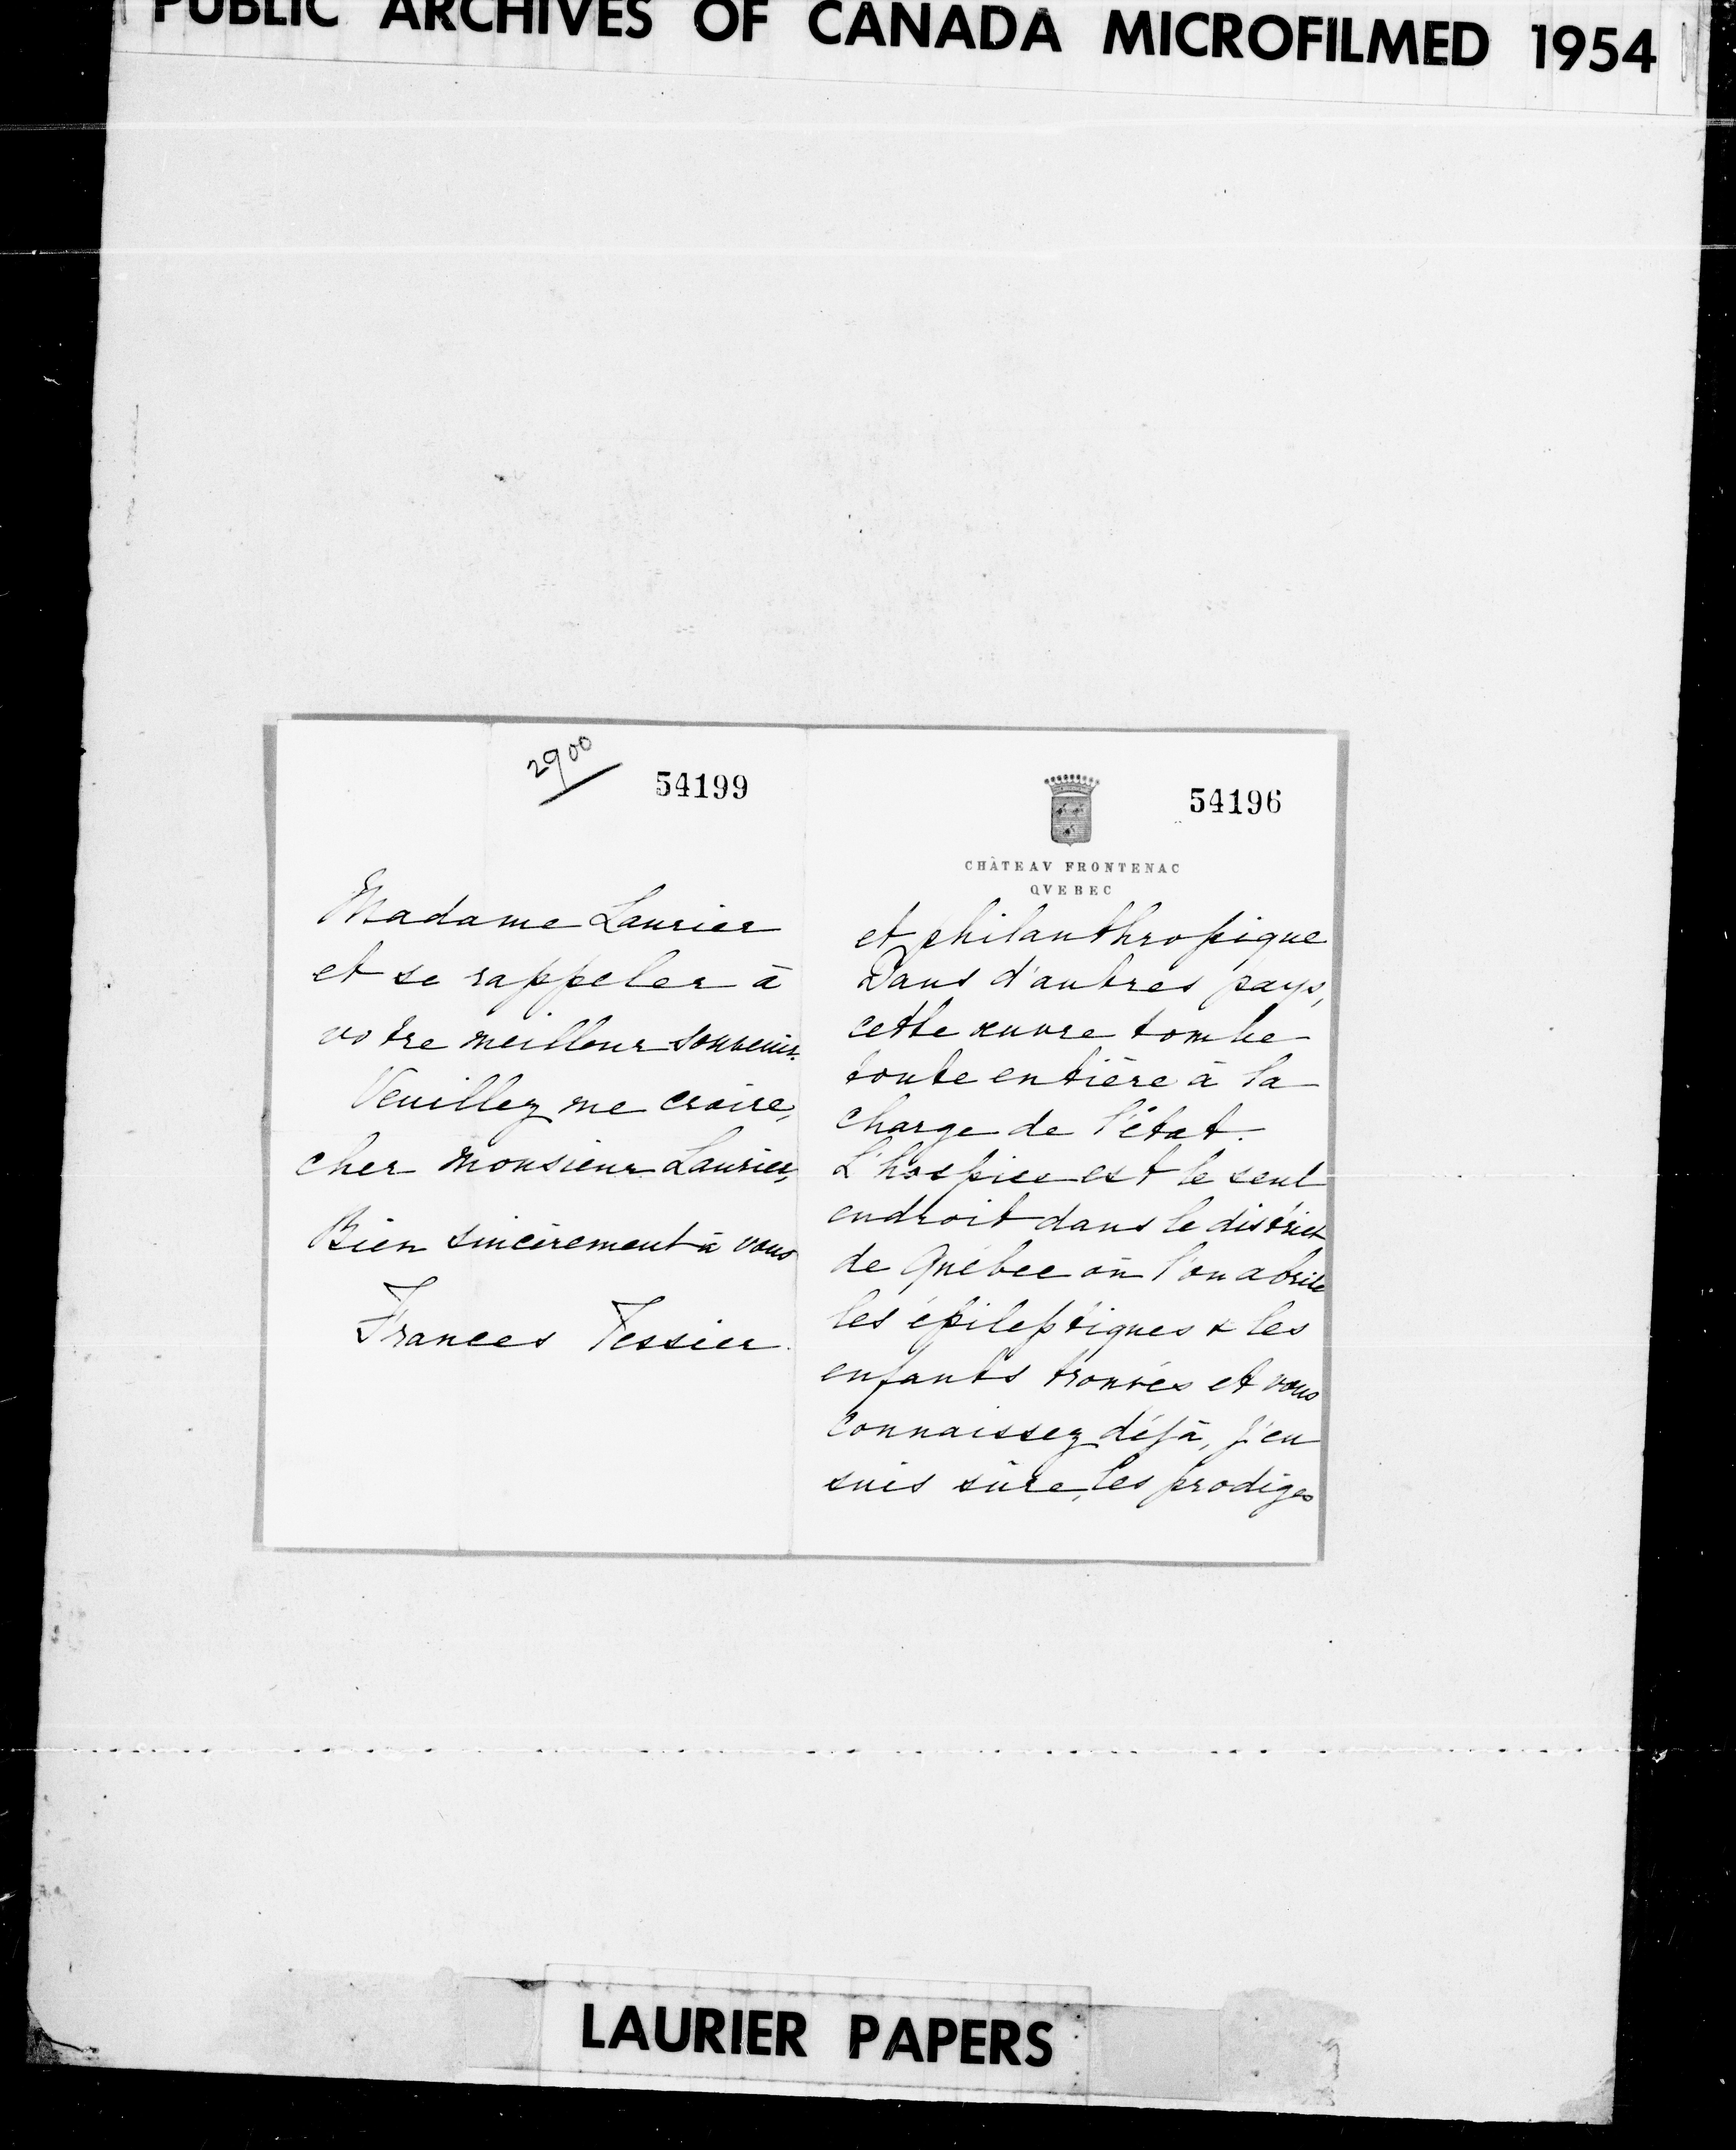 PUBLIC ARCHIVES OF CANADA MICROFILMED 1954
2900
54199
Madame Laurier
et se rappeler à
votre meilleur souvenir.
Veuillez me croire,
cher monsieur Laurier,
Bien sincèrement à vous
Frances Tessier.
54196
CHÂTEAV FRONTENAC
QVEBEC
et philanthropique
Dans d'autres pays,
cette œuvre tombe
toute entière à la
charge de l'état.
L'hospice est le seul
endroit dans le district
de Québec où l'on abrite
les épileptiques & les
enfants trouvés et vous
connaissez déjà, j'en
suis sûre, les prodiges
LAURIER PAPERS